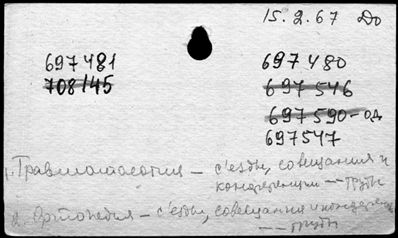 15.2.67 До
697481 697480
708145 697546
697590-од
697547
1. Травматология — съезды, совещания и
конференции — труды
2. Ортопедия — съезды, совещания и конференции
— труды